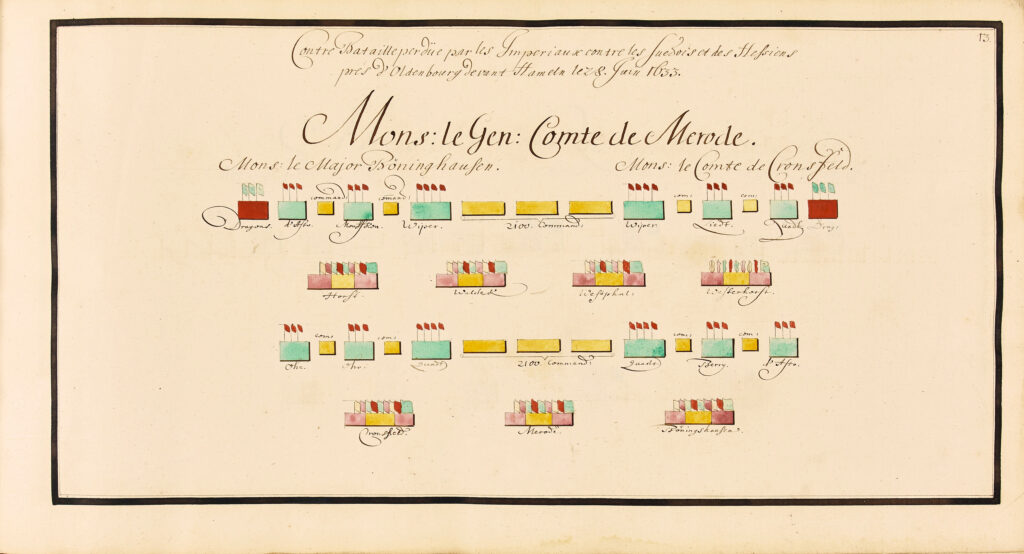 13.
Contre Bataille perdüe par les Imperiaux contre les Suedois et des Hessiens
prés d'Oldenbourg devant Hameln le 28. Juin 1633.
Mons: le Gen: Comte de Merode.
Mons: le Major Böninghausen. Mons: le Comte de Cronsfeld.
command: comand: com: com:
Dragons. Wÿer. 2100. Command: Wÿer. Quadt Drag:
Horst. Westphal: Westerhorst.
com: com: com: com:
Ohr. Ohr. Quadt 2100. Command: Quadt Berry.
Cronsfeld. Merode. Böninghausen.